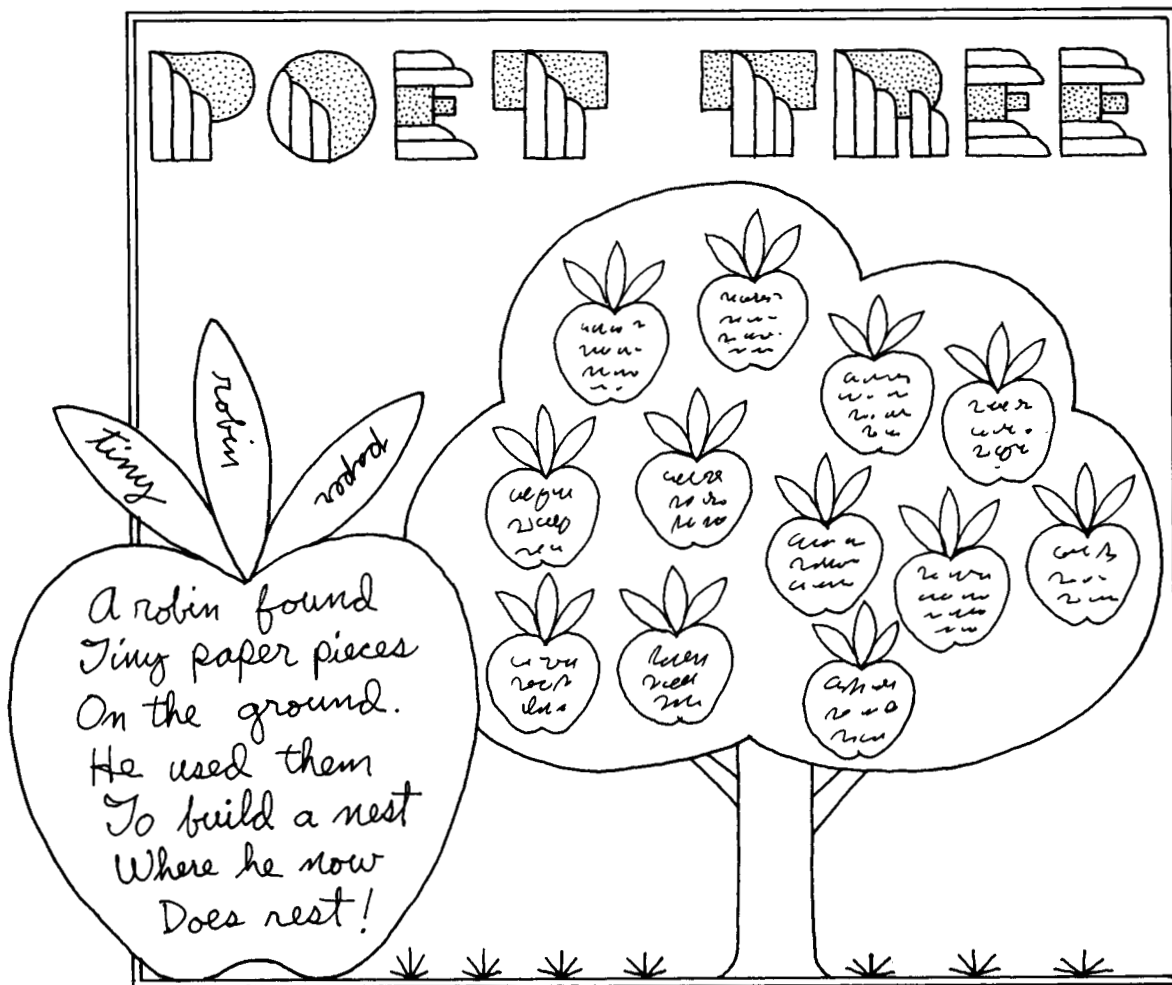 POET TREE
tiny
robin
paper
A robin found
Tiny paper pieces
On the ground.
He used them
To build a nest
Where he now
Does rest!